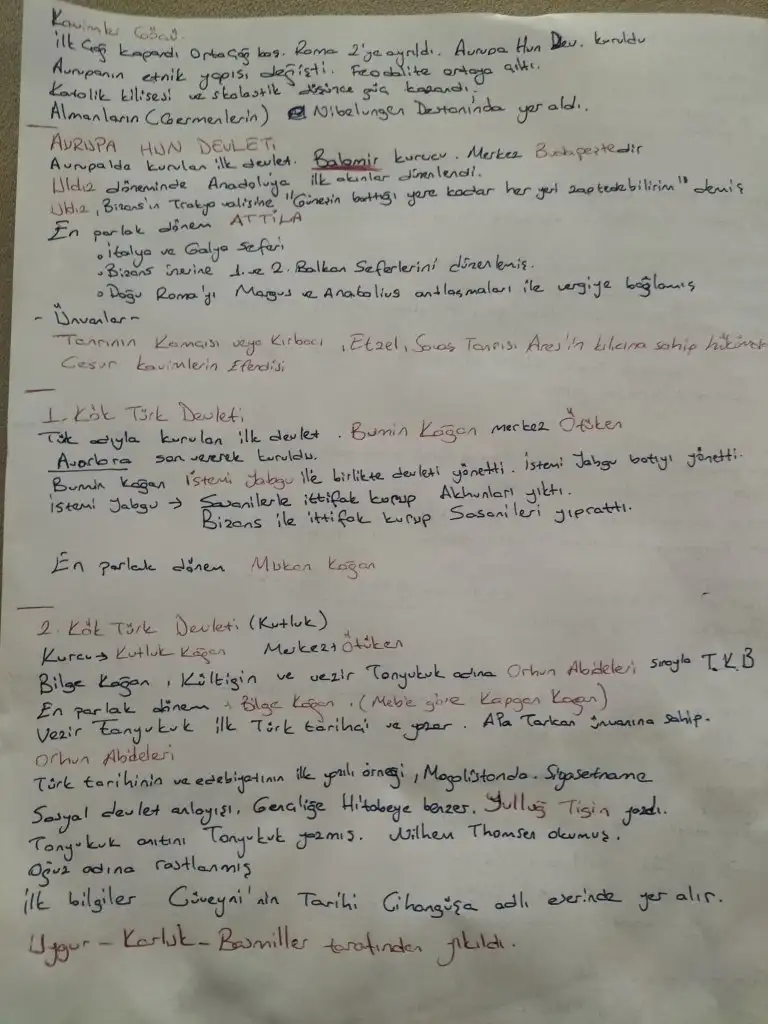 Kavimler Göçü.
İlk Çağ kapandı Orta Çağ baş. Roma 2'ye ayrıldı. Avrupa Hun Dev. kuruldu
Avrupanın etnik yapısı değişti. Feodalite ortaya çıktı.
Katolik kilisesi ve skolastik düşünce güç kazandı.
Almanların (Germenlerin) Nibelungen Destanı'nda yer aldı.
AVRUPA HUN DEVLETİ
Avrupa'da kurulan ilk devlet. Balamir kurucu. Merkez Budapeştedir
Uldız döneminde Anadolu'ya ilk akınlar düzenlendi.
Uldız, Bizans'ın Trakya valisine "Güneşin battığı yere kadar her yeri zaptedebilirim" demiş
En parlak dönem ATTİLA
• İtalya ve Galya Seferi
• Bizans üzerine 1. ve 2. Balkan Seferlerini düzenlemiş.
• Doğu Roma'yı Margus ve Anatolius antlaşmaları ile vergiye bağlamış
- Ünvanlar -
Tanrının Kamçısı veya Kırbacı, Etzel, Savaş Tanrısı Ares'in kılıcına sahip
Cesur kavimlerin Efendisi
1. Kök Türk Devleti
Türk adıyla kurulan ilk devlet. Bumin Kağan merkez Ötüken
Avarlara son vererek kuruldu.
Bumin Kağan İstemi Yabgu ile birlikte devleti yönetti. İstemi Yabgu batıyı yönetti.
İstemi Yabgu → Sasanilerle ittifak kurup Akhunları yıktı.
Bizans ile ittifak kurup Sasanileri yıprattı.
En parlak dönem Mukan Kağan
2. Kök Türk Devleti (Kutluk)
Kurcu → Kutluk Kağan Merkez → Ötüken
Bilge Kağan, Kültigin ve vezir Tonyukuk adına Orhun Abideleri sırayla T.K.B
En parlak dönem → Bilge Kağan. (Meb'e göre Kapgan Kağan)
Vezir Tonyukuk ilk Türk tarihçi ve yazar. Apa Tarkan ünvanına sahip.
Orhun Abideleri
Türk tarihinin ve edebiyatının ilk yazılı örneği, Moğolistanda. Siyasetname
Sosyal devlet anlayışı. Gençliğe Hitabeye benzer. Yulluğ Tigin yazdı.
Tonyukuk anıtını Tonyukuk yazmış. Wilhem Thomsen okumuş.
Oğuz adına rastlanmış
İlk bilgiler Cüveyni'nin Tarihi Cihangüşa adlı eserinde yer alır.
Uygur - Karluk - Basmiller tarafından yıkıldı.